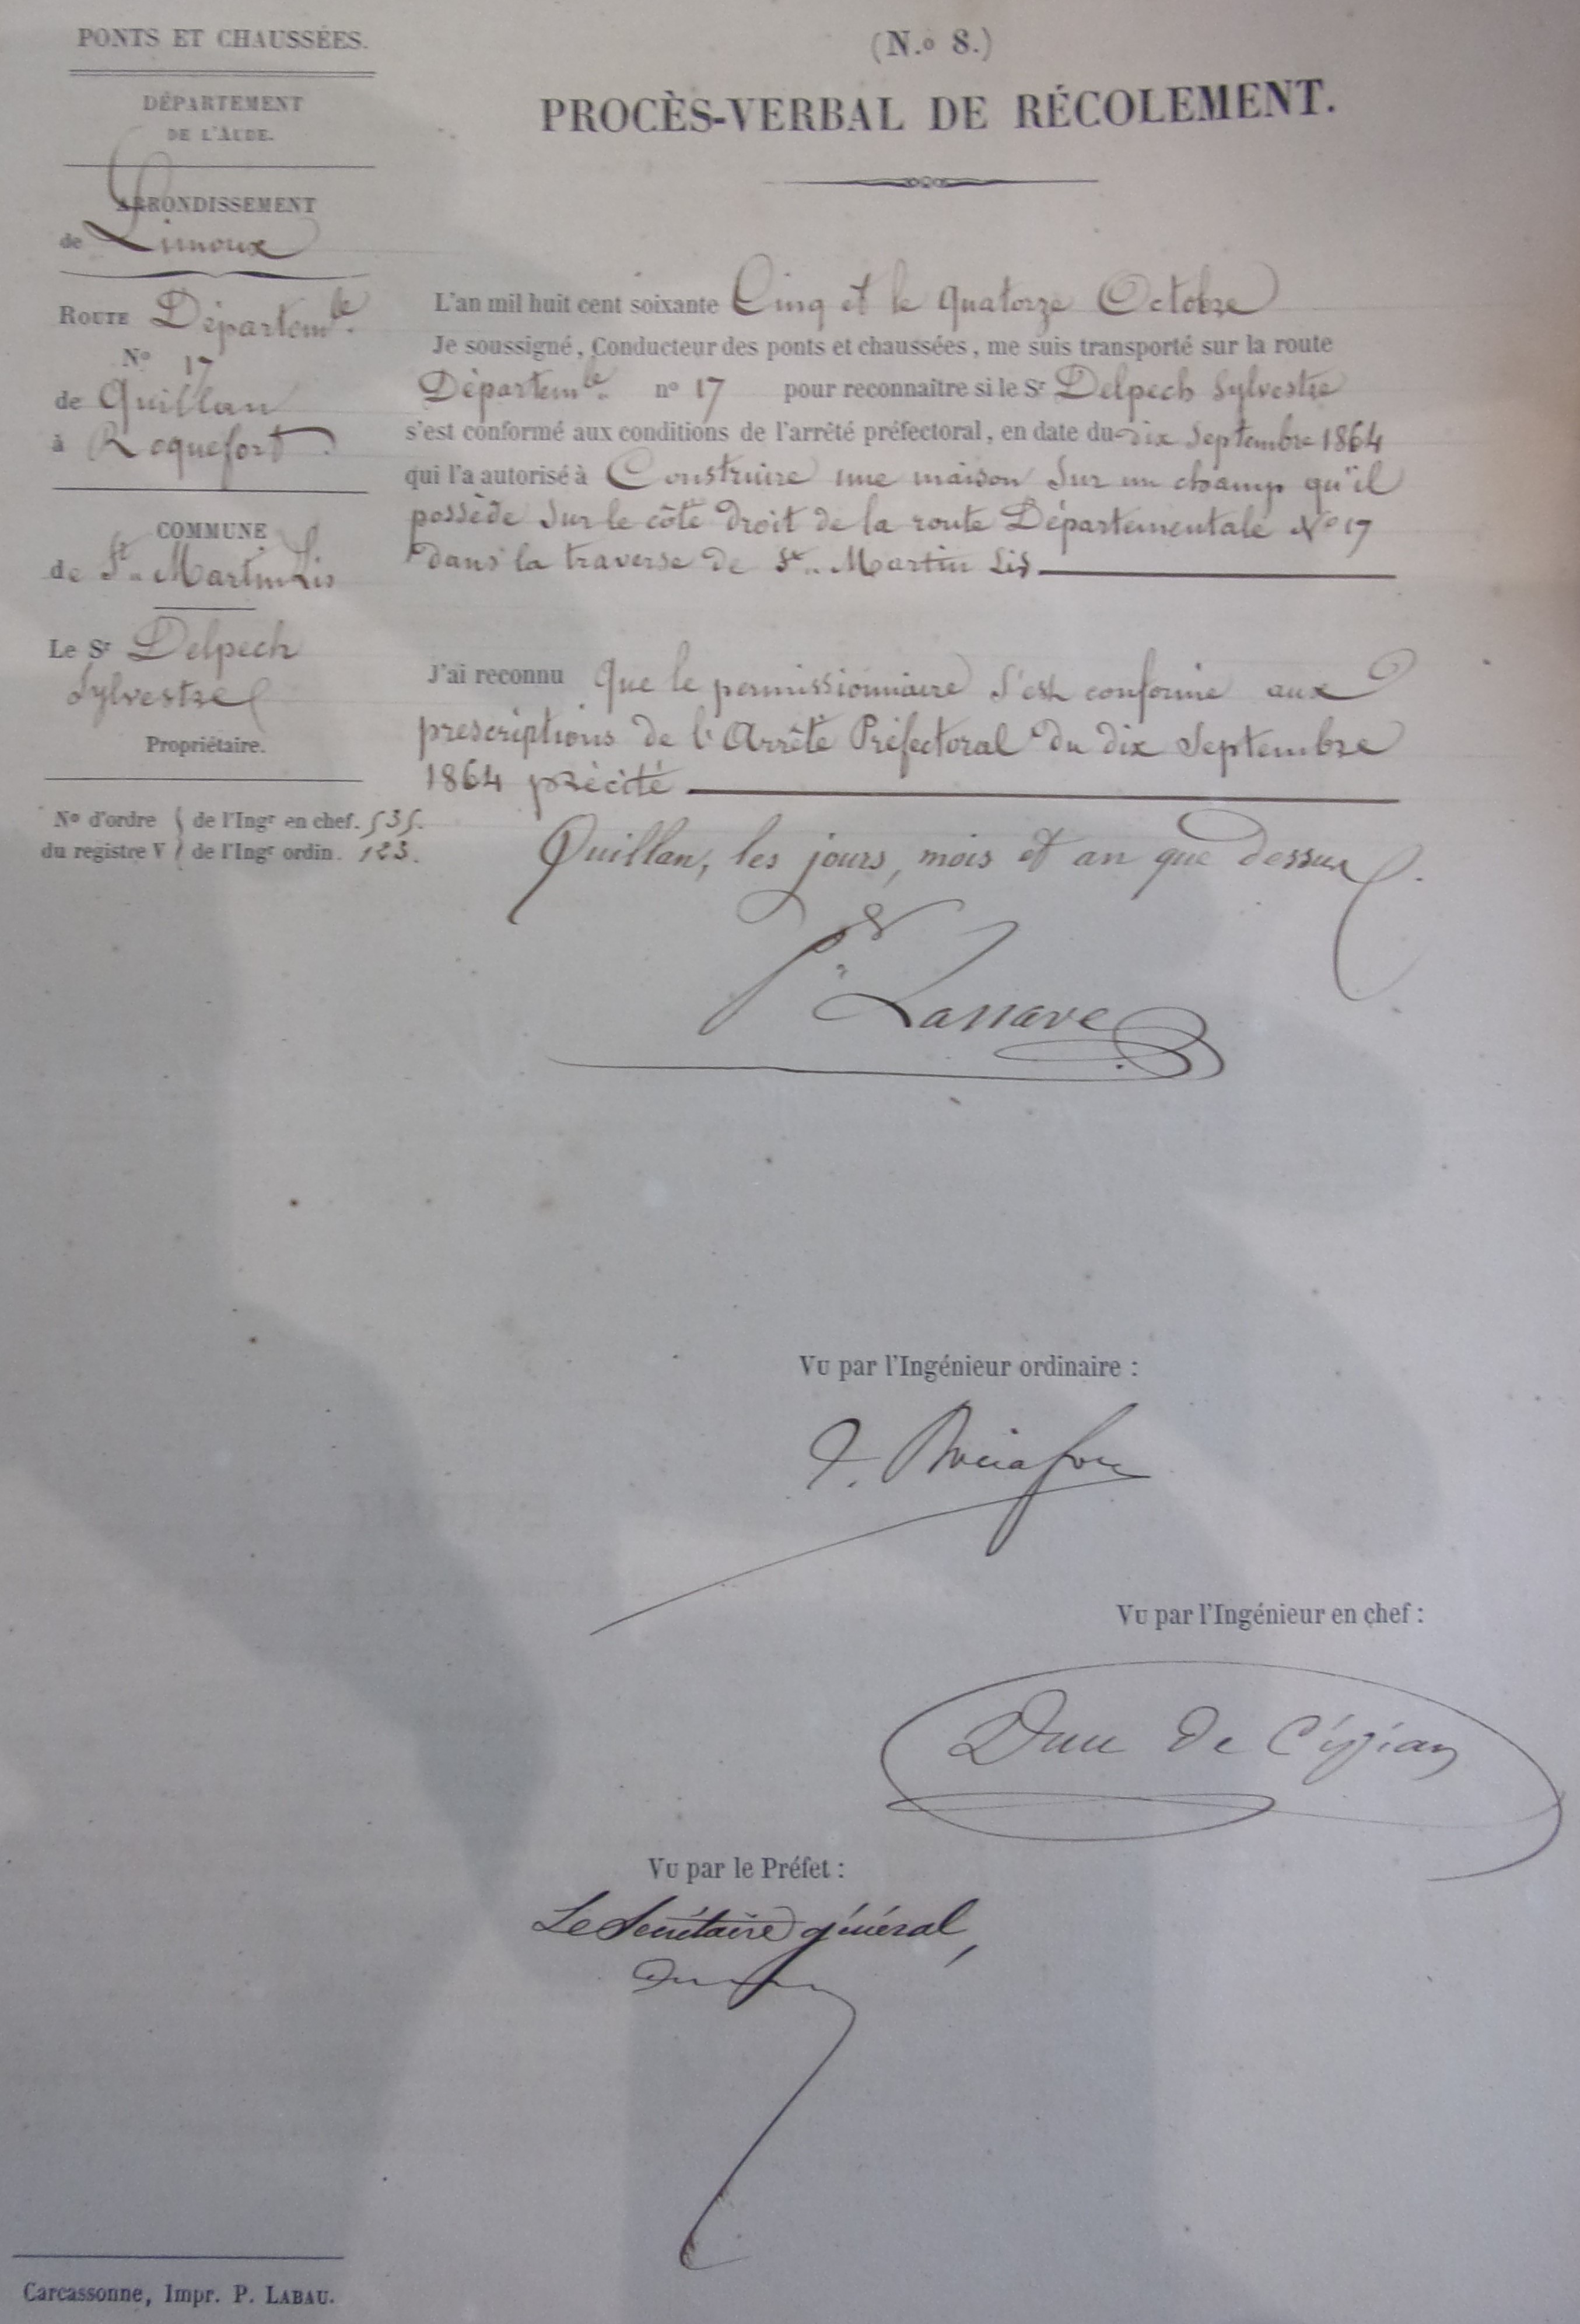 PONTS ET CHAUSSÉES.
DÉPARTEMENT
DE L'AUDE.
ARRONDISSEMENT
de Limoux
ROUTE Départemle.
No 17
de Quillan
à Roquefort
COMMUNE
de St. Martin Lis
Le Sr Delpech
Sylvestre
Propriétaire.
No d'ordre { de l'Ingr en chef. 535.
du registre V { de l'Ingr ordin. 123.
(N.o 8.)
PROCÈS-VERBAL DE RÉCOLEMENT.
L'an mil huit cent soixante Cinq et le quatorze Octobre
Je soussigné, Conducteur des ponts et chaussées, me suis transporté sur la route
Départemle. no 17 pour reconnaître si le Sr Delpech Sylvestre
s'est conformé aux conditions de l'arrêté préfectoral, en date du dix Septembre 1864
qui l'a autorisé à Construire une maison Sur un champ qu'il
possède Sur le côté droit de la route Départementale No 17
dans la traverse de St. Martin Lis
J'ai reconnu que le permissionnaire s'est conformé aux
prescriptions de l'Arrêté Préfectoral du dix Septembre
1864 précité
Quillan, les jours, mois et an que dessus.
Lassave
Vu par l'Ingénieur ordinaire :
Vu par l'Ingénieur en chef :
de
Vu par le Préfet :
Le Secrétaire général,
Carcassonne, Impr. P. LABAU.